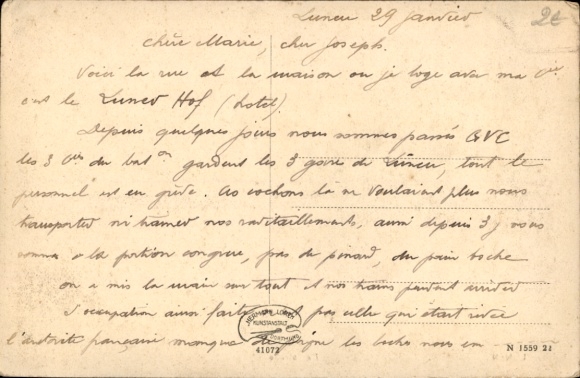 Lunen 29 janvier
2€
Chère Marie, cher Joseph.
Voici la rue et la maison ou je loge avec ma Cie
ont le Luner Hof (hotel)
Depuis quelques jours nous sommes passés GVC
les 3 Cies du bat on gardent les 3 gares de Lünen, tout le
personnel est en grève. Ces cochons là ne voulaient plus nous
transporter ni trainer nos ravitaillements, aussi depuis 3 j nous
sommes à la portion congrue, pas de pinard, du pain boche
on a mis la main sur tout et nos trains peuvent
l'occupation ainsi faite pas celle qui était
l'autorité française manque de les boches nous en
HERMANN LOREY
KUNSTANSTALT
DORTMUND
41072
N 1559 21